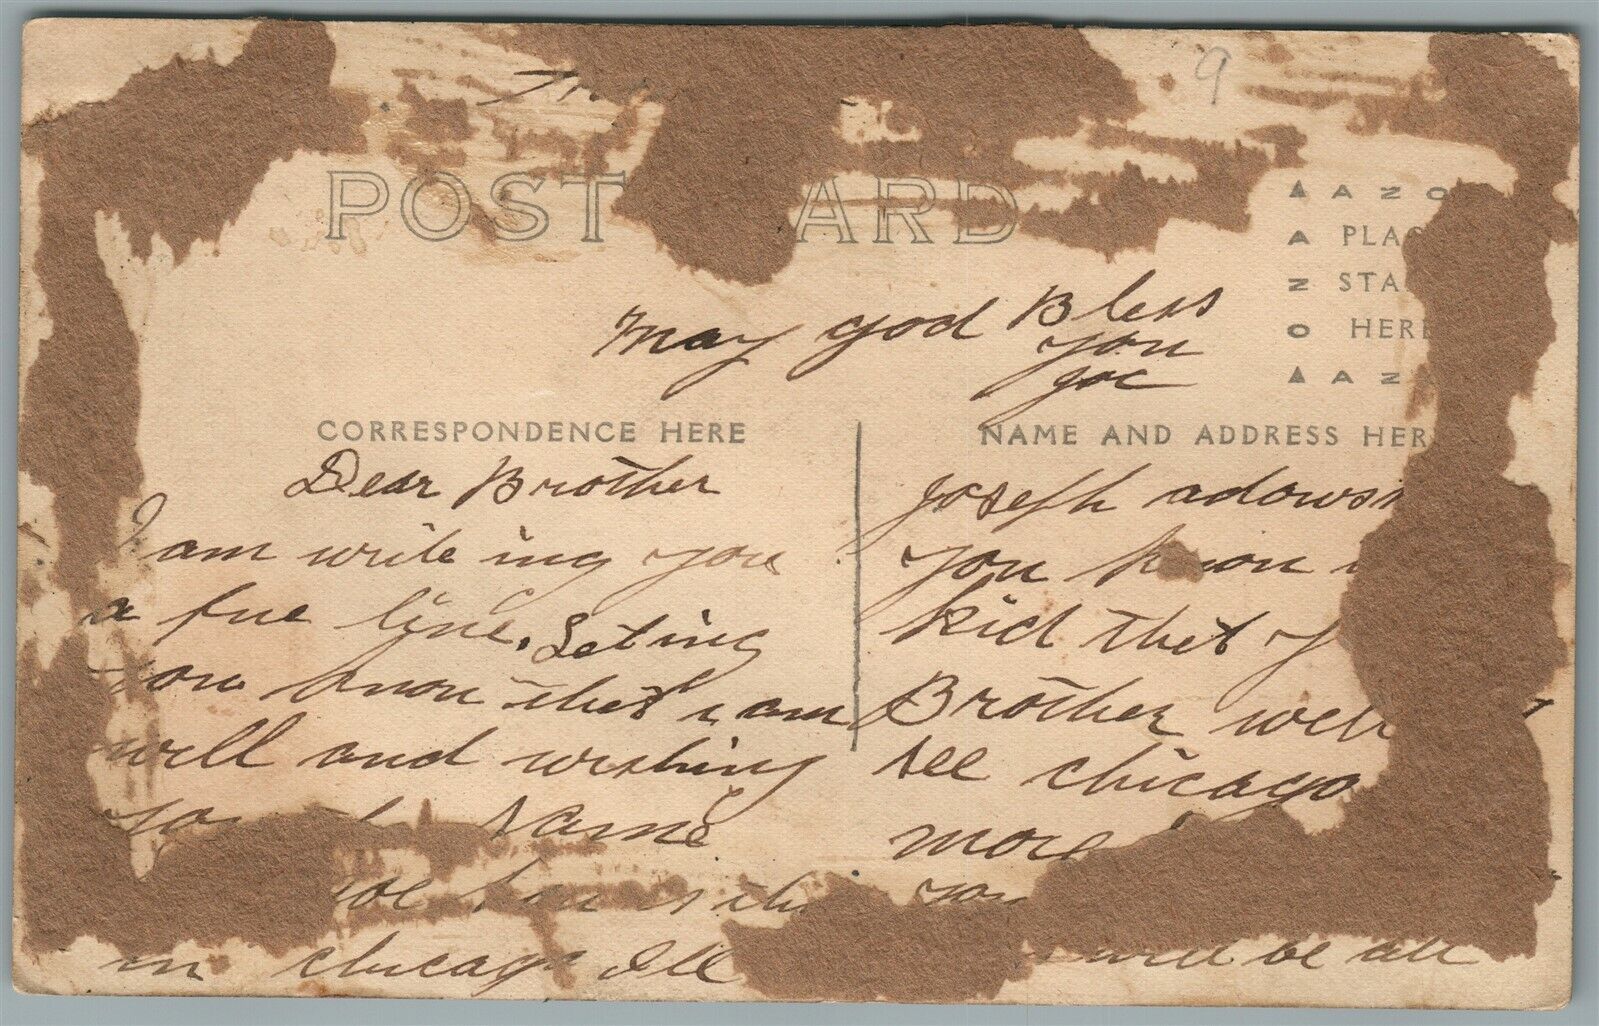 9
POST ARD
AZO
PLAC
STA
HERE
AZ
May god Bless
you
Joe
CORRESPONDENCE HERE
Dear Brother
I am write ing you
a fue line. Seting
you know thet i am
well and wishing
Same
in chicago Ill
NAME AND ADDRESS HER
Joseph adows
you know
kid thet
Brother
see chicago
more
you
will be all